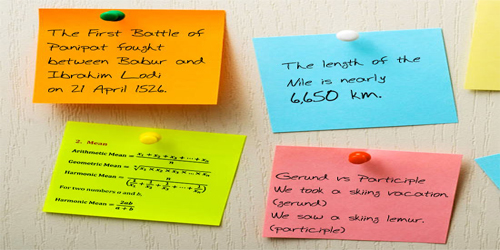 The First Battle of
Panipat fought
between Babur and
Ibrahim Lodi
on 21 April 1526.
The length of the
Nile is nearly
6,650 km.
2. Mean
Arithmetic Mean = (x₁ + x₂ + x₃ + ⋯ + xₙ) / n
Geometric Mean = ⁿ√(x₁ × x₂ × x₃ × … × xₙ)
Harmonic Mean = n / (1/x₁ + 1/x₂ + 1/x₃ + ⋯ + 1/xₙ)
For two numbers a and b,
Harmonic Mean = 2ab / (a + b)
Gerund vs Participle
We took a skiing vacation.
(gerund)
We saw a skiing lemur.
(participle)